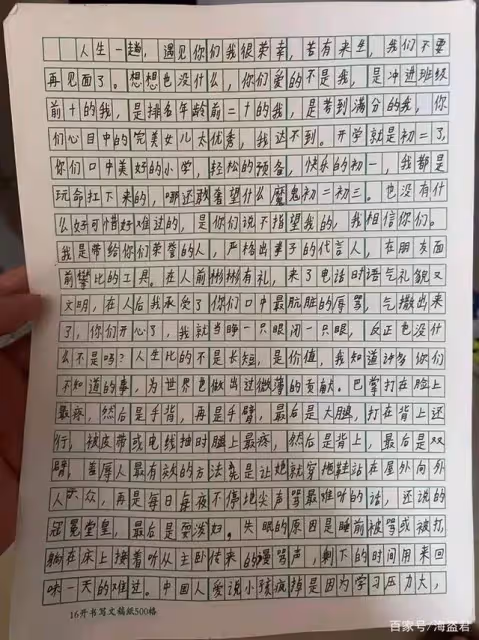 人生一趟，遇见你们我很荣幸，若有来生，我们不要
再见面了。想想也没什么，你们爱的不是我，是冲进班级
前十的我，是排名年龄前二十的我，是考到满分的我，你
们心目中的完美女儿太优秀，我达不到。开学就是初二了，
你们口中美好的小学，轻松的预备，快乐的初一，我都是
玩命扛下来的，哪还敢奢望什么魔鬼初二初三。也没有什
么好可惜好难过的，是你们说不指望我的，我相信你们。
我是带给你们荣誉的人，严格出事子的代言人，在朋友面
前攀比的工具。在人前彬彬有礼，来了电话时语气礼貌又
文明，在人后我承受了你们口中最肮脏的辱骂，气撒出来
了，你们开心了，我就当睁一只眼闭一只眼，反正也没什
么不是吗？人生比的不是长短，是价值，我知道许多你们
不知道的事，为世界也做出过微薄的贡献。巴掌打在脸上
最疼，然后是手背，再是手臂，最后是大腿，打在背上还
行，被皮带或电线抽时腿上最疼，然后是背上，最后是双
臂，羞辱人最有效的方法就是让她就穿拖鞋站在屋外向外
人示众，再是每日每夜不停地尖声骂最难听的话，还说的
冠冕堂皇，最后是耍泼妇。失眠的原因是睡前被骂或被打，
躺在床上接着听从主卧传来的谩骂声，剩下的时间用来回
味一天的难过。中国人爱说小孩疯掉是因为学习压力大，
16开书写文稿纸500格
百家号/海盗君